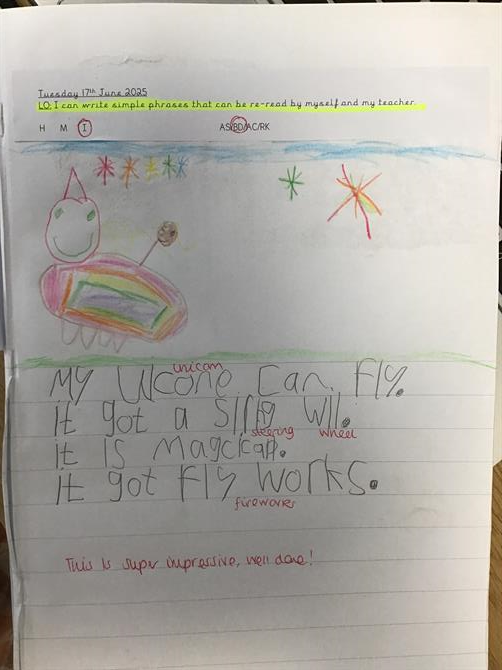 Tuesday 17th June 2025
LO: I can write simple phrases that can be re-read by myself and my teacher.
H M I AS/BD/AC/RK
unicorn
My Ucone Can. Fly.
It got a Sirrg Wll.
steering wheel
It Is Magcicap.
It got Fly Works.
fireworks
This is super impressive, well done!